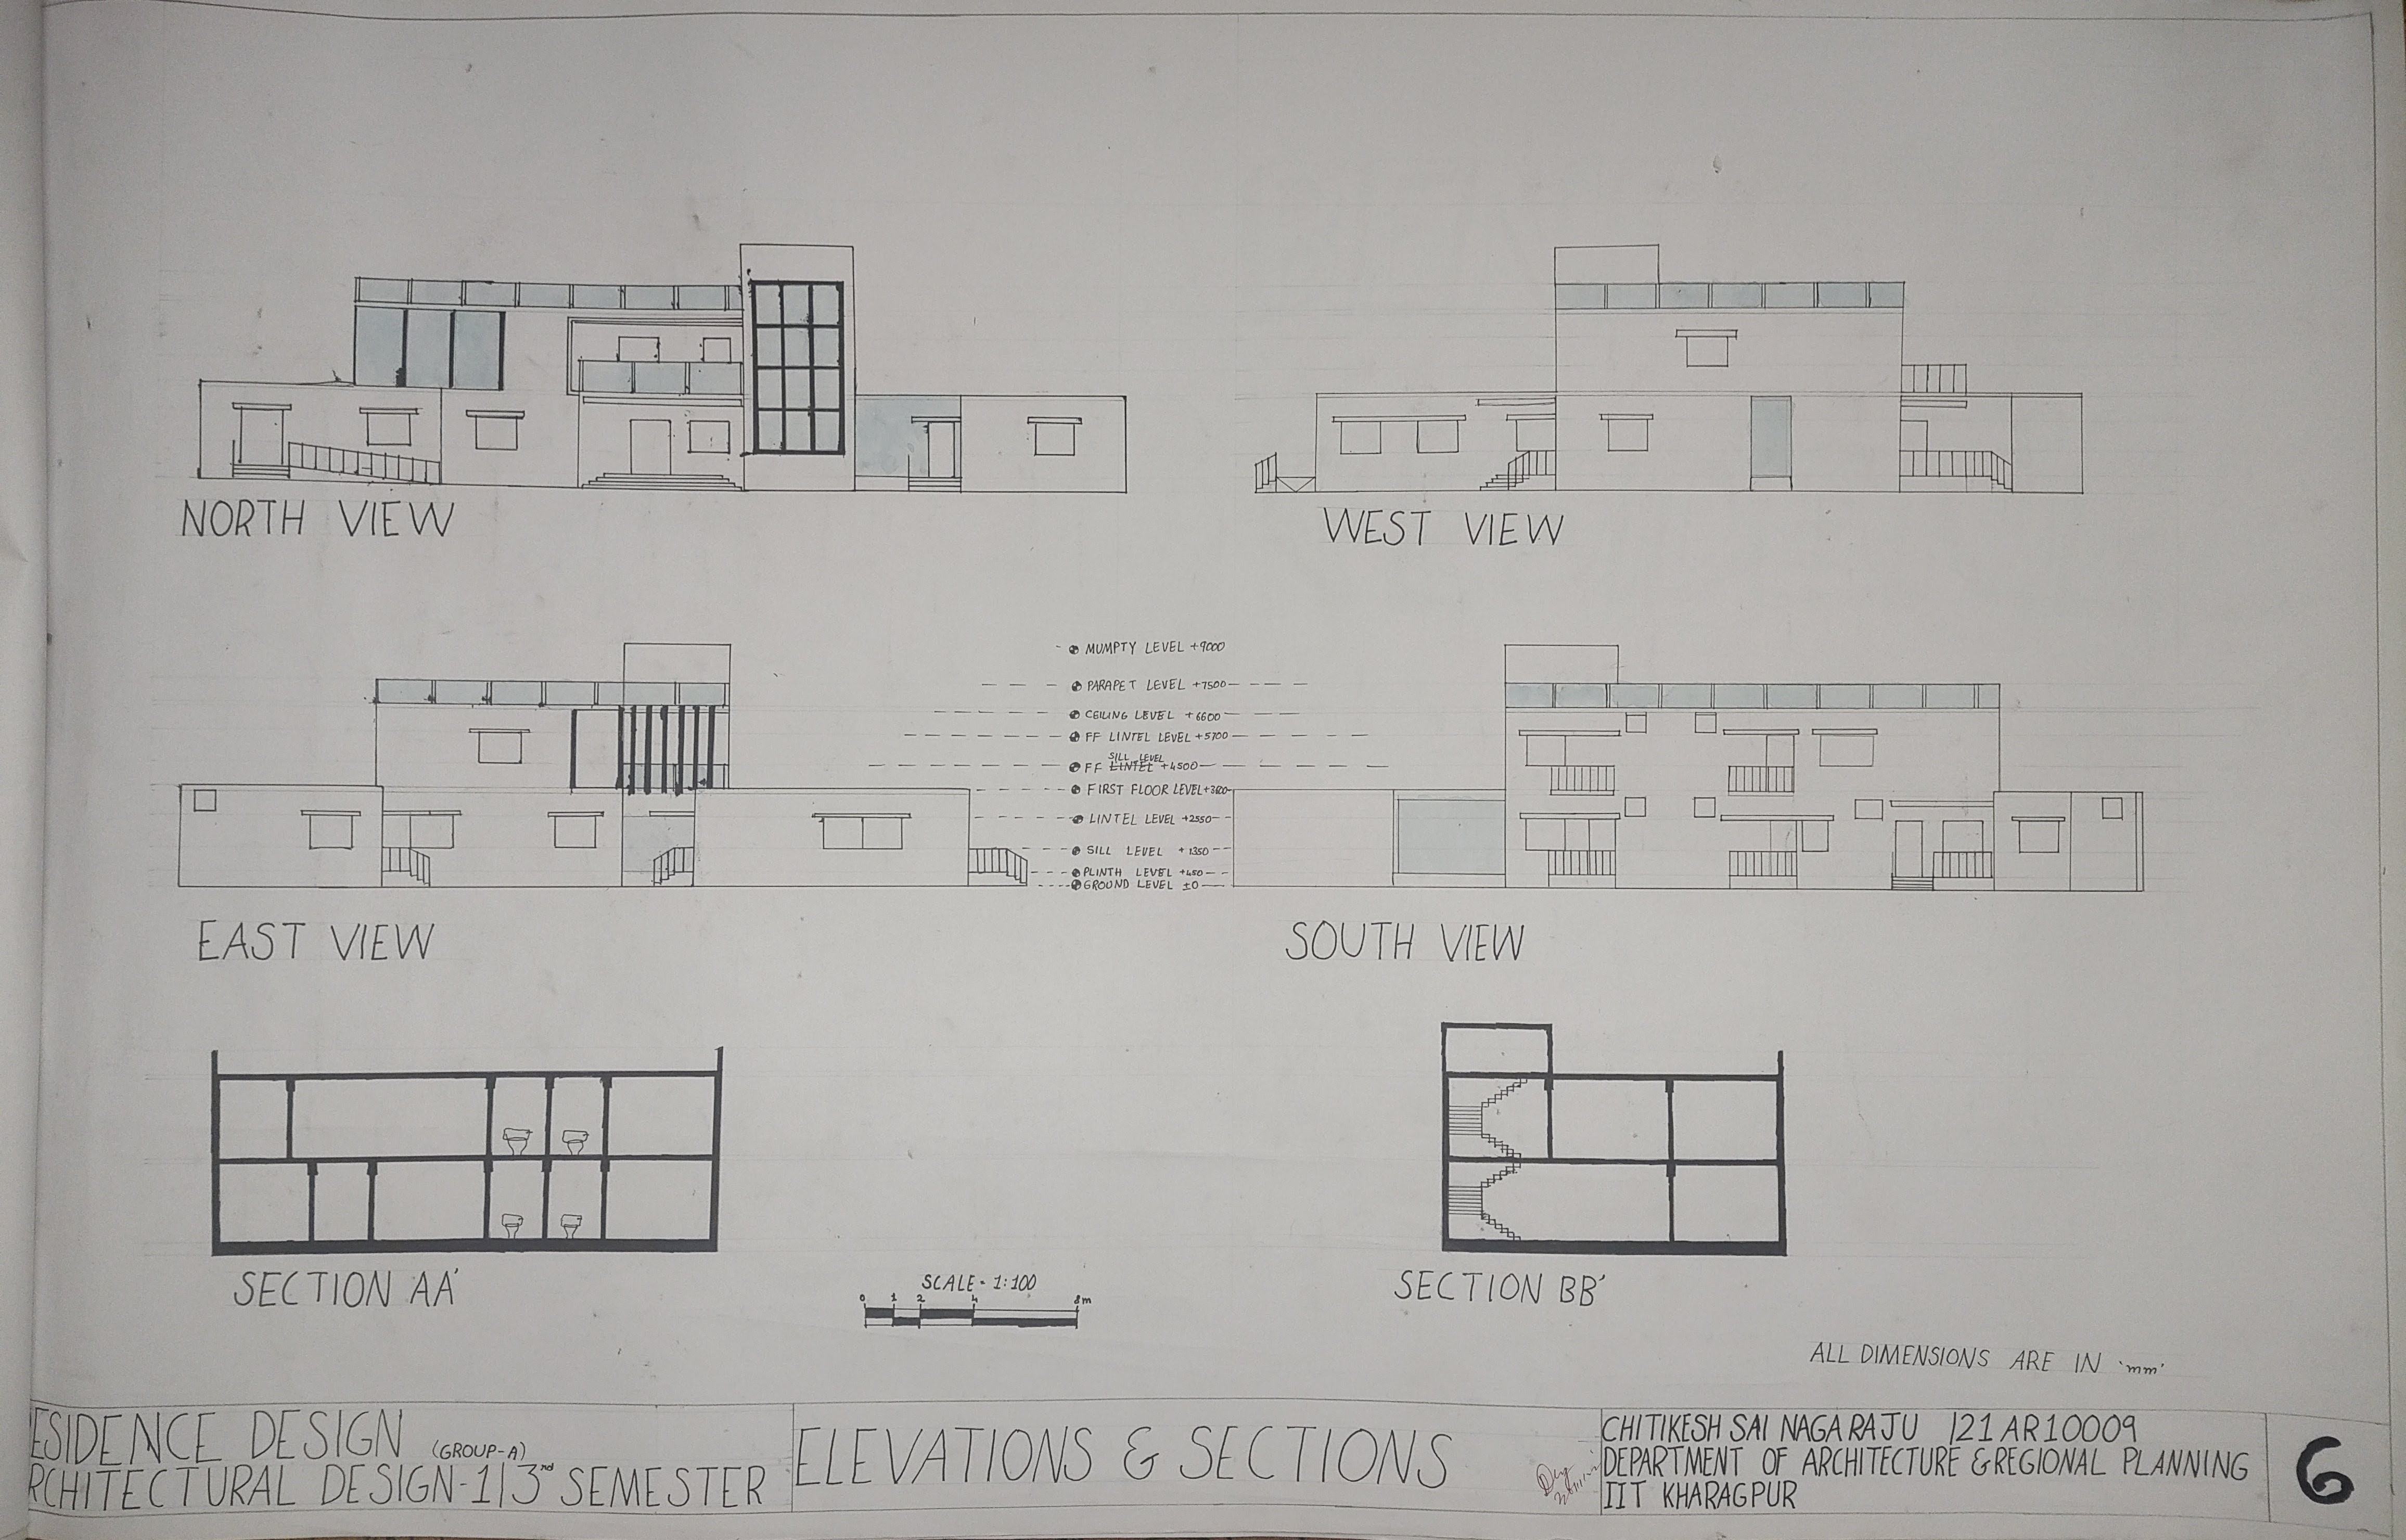 NORTH VIEW
WEST VIEW
MUMPTY LEVEL +9000
PARAPET LEVEL +7500
CEILING LEVEL +6600
FF LINTEL LEVEL +5700
SILL LEVEL
FF LINTEL +4500
FIRST FLOOR LEVEL +3600
LINTEL LEVEL +2550
SILL LEVEL +1350
PLINTH LEVEL +450
GROUND LEVEL ±0
EAST VIEW
SOUTH VIEW
SECTION AA'
SCALE - 1:100
0 1 2 4 8m
SECTION BB'
ALL DIMENSIONS ARE IN 'mm'
ESIDENCE DESIGN (GROUP-A)
RCHITECTURAL DESIGN-1|3nd SEMESTER
ELEVATIONS & SECTIONS
CHITIKESH SAI NAGA RAJU |21AR10009
DEPARTMENT OF ARCHITECTURE & REGIONAL PLANNING
IIT KHARAGPUR
6